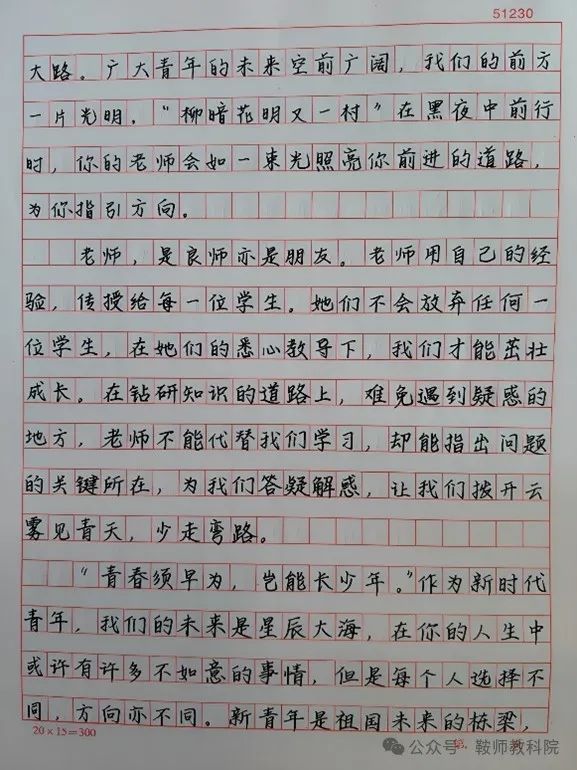 51230
大路。广大青年的未来空前广阔，我们的前方
一片光明，“柳暗花明又一村”在黑夜中前行
时，你的老师会如一束光照亮你前进的道路，
为你指引方向。
老师，是良师亦是朋友。老师用自己的经
验，传授给每一位学生。她们不会放弃任何一
位学生，在她们的悉心教导下，我们才能茁壮
成长。在钻研知识的道路上，难免遇到疑惑的
地方，老师不能代替我们学习，却能指出问题
的关键所在，为我们答疑解惑，让我们拨开云
雾见青天，少走弯路。
“青春须早为，岂能长少年。”作为新时代
青年，我们的未来是星辰大海，在你的人生中
或许有许多不如意的事情，但是每个人选择不
同，方向亦不同。新青年是祖国未来的栋梁，
20×15=300
公众号 鞍师教科院